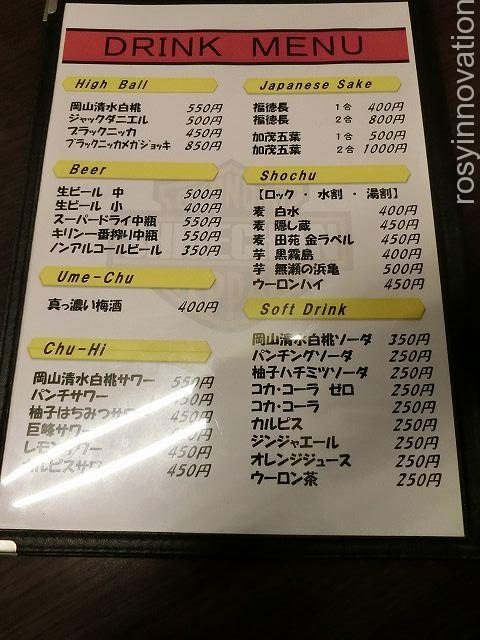 DRINK MENU
High Ball
岡山清水白桃 550円
ジャックダニエル 500円
ブラックニッカ 450円
ブラックニッカメガジョッキ 850円
Beer
生ビール 中 500円
生ビール 小 400円
スーパードライ中瓶 550円
キリン一番搾り中瓶 550円
ノンアルコールビール 350円
Ume-Chu
真っ濃い梅酒 400円
Chu-Hi
岡山清水白桃サワー 550円
パンチサワー 450円
柚子はちみつサワー 450円
巨峰サワー
レモンサワー 450円
カルピスサワー 450円
Japanese Sake
福徳長 1合 400円
福徳長 2合 800円
加茂五葉 1合 500円
加茂五葉 2合 1000円
Shochu
【ロック ・ 水割 ・ 湯割】
麦 白水 400円
麦 隠し蔵 450円
麦 田苑 金ラベル 450円
芋 黒霧島 400円
芋 無瀬の浜亀 500円
ウーロンハイ 450円
Soft Drink
岡山清水白桃ソーダ 350円
パンチングソーダ 250円
柚子ハチミツソーダ 250円
コカ・コーラ ゼロ 250円
コカ・コーラ 250円
カルピス 250円
ジンジャエール 250円
オレンジジュース 250円
ウーロン茶 250円
rosyinnovation